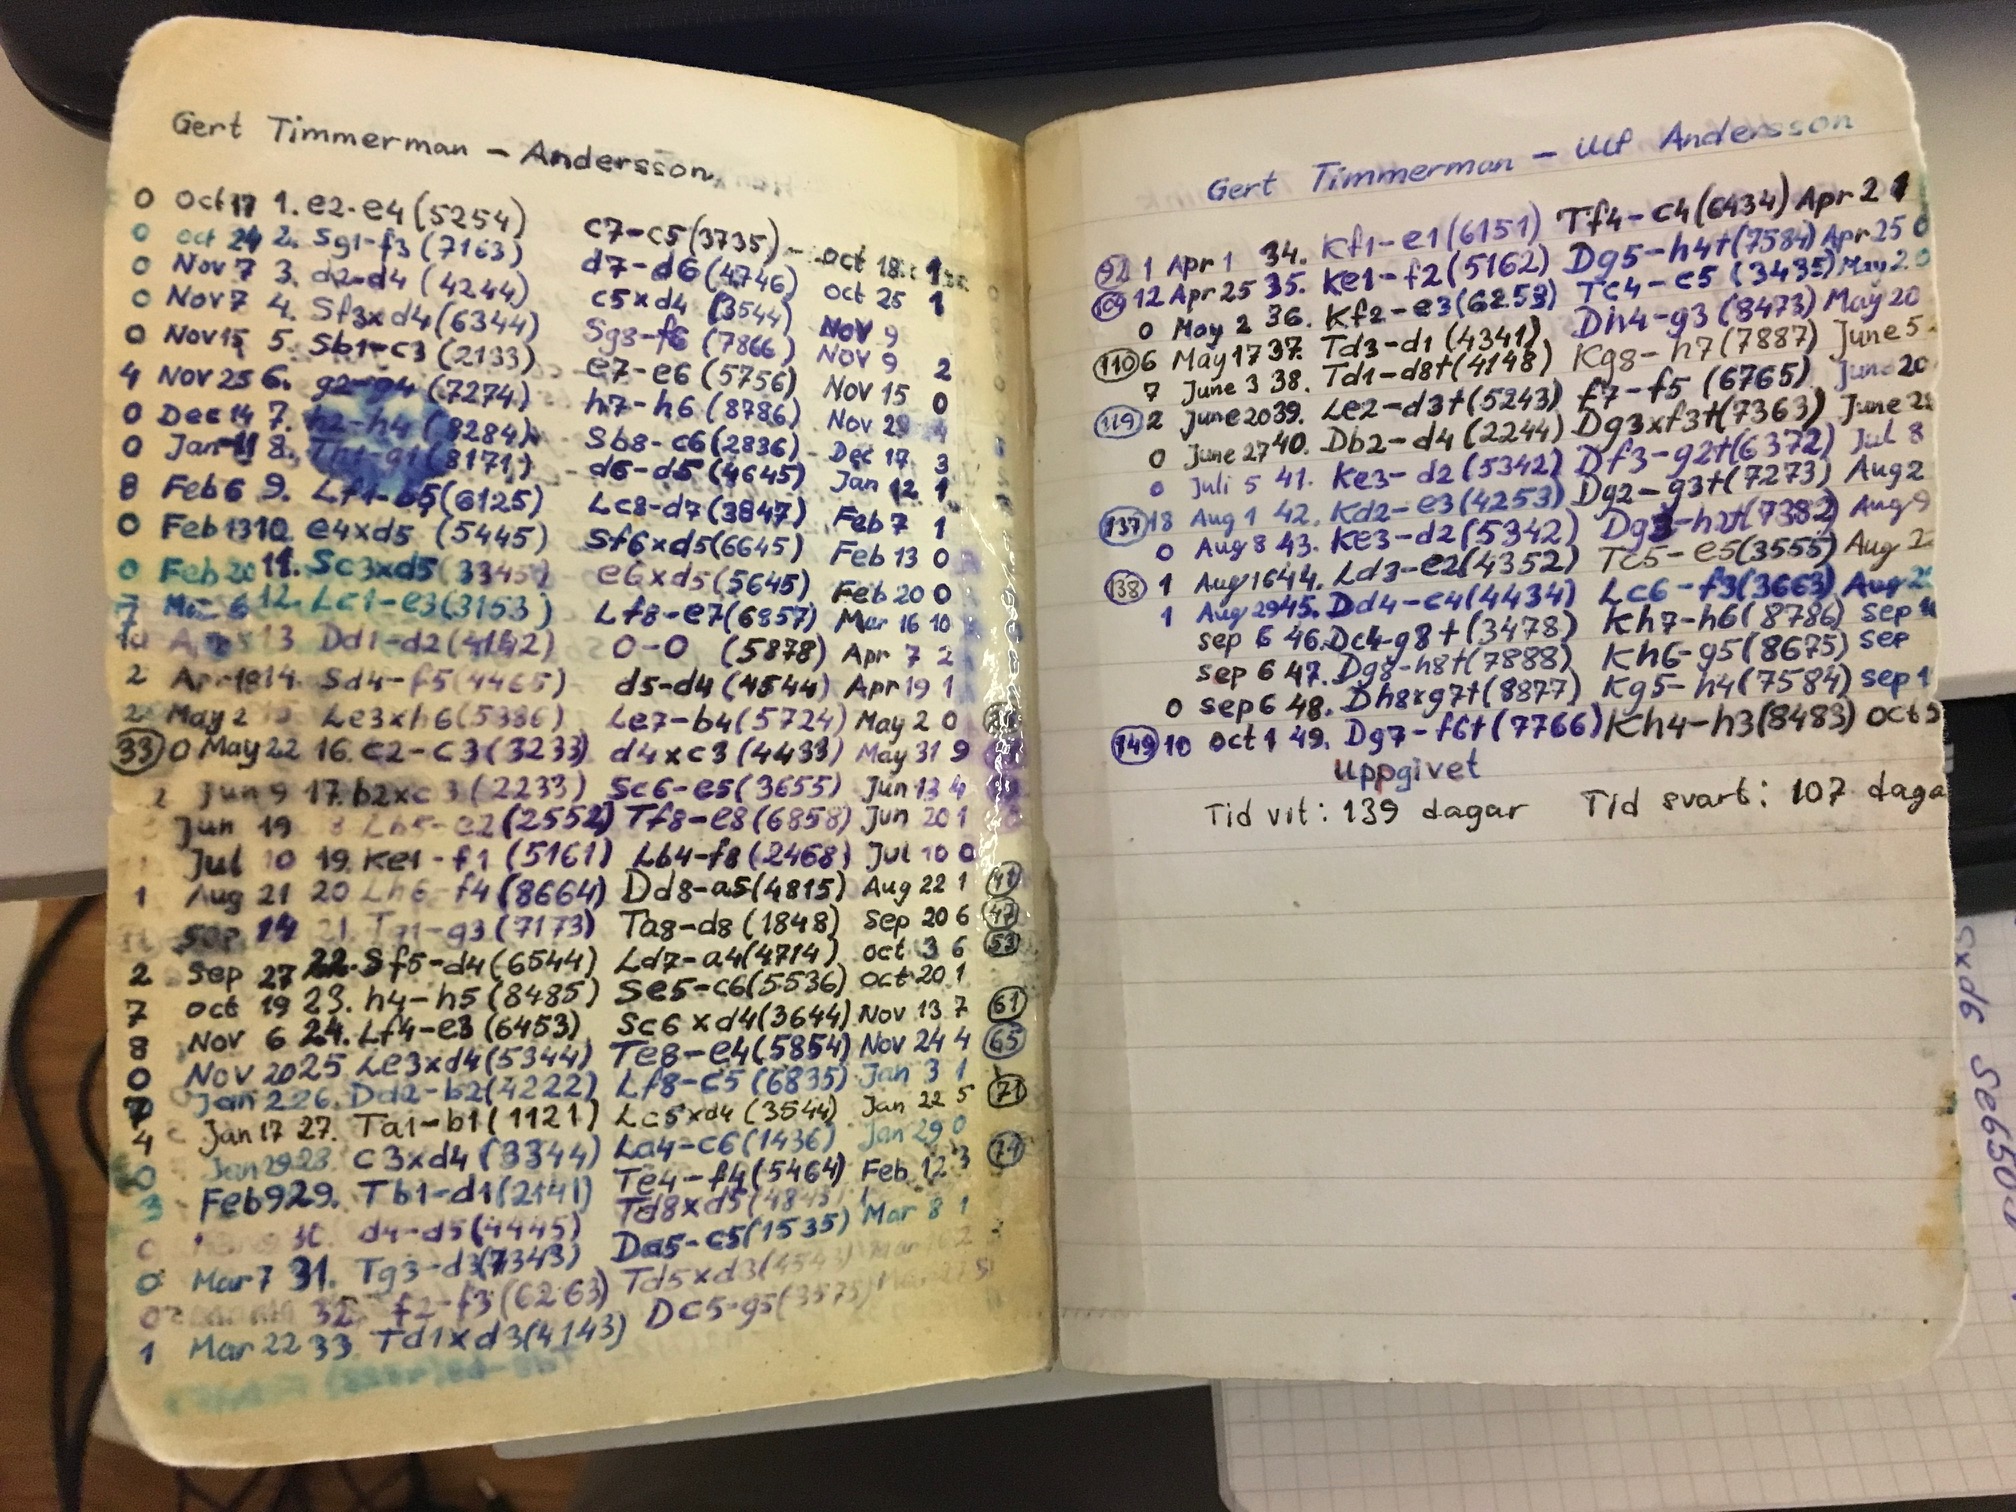 Gert Timmerman – Andersson
0 Oct 17 1. e2-e4 (5254) c7-c5 (3735) oct 18 1
0 oct 24 2. Sg1-f3 (7163) d7-d6 (4746) oct 25 1
0 Nov 7 3. d2-d4 (4244) c5xd4 (3544) Nov 9
0 Nov 7 4. Sf3xd4 (6344) Sg8-f6 (7866) Nov 9 2
0 Nov 15 5. Sb1-c3 (2133) e7-e6 (5756) Nov 15 0
4 Nov 25 6. g2-g4 (7274) h7-h6 (8786) Nov 29 4
0 Dec 14 7. h2-h4 (8284) Sb8-c6 (2836) Dec 17 3
0 Jan 11 8. Th1-g1 (8171) d6-d5 (4645) Jan 12 1
8 Feb 6 9. Lf1-b5 (6125) Lc8-d7 (3847) Feb 7 1
0 Feb 13 10. e4xd5 (5445) Sf6xd5 (6645) Feb 13 0
0 Feb 20 11. Sc3xd5 (3345) e6xd5 (5645) Feb 20 0
7 6 12. Lc1-e3 (3153) Lf8-e7 (6857) Mar 16 10
13 Dd1-d2 (4142) 0-0 (5878) Apr 7 2
2 Apr 18 14. Sd4-f5 (4465) d5-d4 (4544) Apr 19 1
2 May 2 Le3xh6 (5386) Le7-b4 (5724) May 2 0
33 0 May 22 16. c2-c3 (3233) d4xc3 (4433) May 31 9
2 Jun 9 17. b2xc3 (2233) Sc6-e5 (3655) Jun 13 4
Jun 19 8 Lb5-e2 (2552) Tf8-e8 (6858) Jun 20 1
Jul 10 19. Ke1-f1 (5161) Lb4-f8 (2468) Jul 10 0
1 Aug 21 20 Lh6-f4 (8664) Dd8-a5 (4815) Aug 22 1 41
Sep 14 21. Tg1-g3 (7173) Ta8-d8 (1848) Sep 20 6 47
2 Sep 27 22. Sf5-d4 (6544) Ld7-a4 (4714) oct 3 6 53
7 oct 19 23. h4-h5 (8485) Se5-c6 (5536) oct 20 1
8 Nov 6 24. Lf4-e3 (6453) Sc6xd4 (3644) Nov 13 7 61
0 Nov 20 25 Le3xd4 (5344) Te8-e4 (5854) Nov 24 4 65
7 Jan 2 26. Dd2-b2 (4222) Lf8-c5 (6835) Jan 3 1
4 Jan 17 27. Ta1-b1 (1121) Lc5xd4 (3544) Jan 22 5 71
0 Jan 29 28. c3xd4 (3344) La4-c6 (1436) Jan 29 0
3 Feb 9 29. Tb1-d1 (2141) Te4-f4 (5464) Feb 12 3 74
0 30. d4-d5 (4445) Td8xd5 (4845)
0 Mar 7 31. Tg3-d3 (7343) Da5-c5 (1535) Mar 8 1
0 32. f2-f3 (6263) Td5xd3 (4543)
1 Mar 22 33 Td1xd3 (4143) Dc5-g5 (3575) Mar 27 5
Gert Timmerman – Ulf Andersson
92 1 Apr 1 34. Kf1-e1 (6151) Tf4-c4 (6434) Apr 2 1
109 12 Apr 25 35. Ke1-f2 (5162) Dg5-h4† (7584) Apr 25 0
0 May 2 36. Kf2-e3 (6253) Tc4-c5 (3435) May 2 0
110 6 May 17 37. Td3-d1 (4341) Dh4-g3 (8473) May 20
7 June 3 38. Td1-d8† (4148) Kg8-h7 (7887) June 5
119 2 June 20 39. Le2-d3† (5243) f7-f5 (6765) June 20
0 June 27 40. Db2-d4 (2244) Dg3xf3† (7363) June 28
0 Juli 5 41. Ke3-d2 (5342) Df3-g2† (6372) Jul 8
137 18 Aug 1 42. Kd2-e3 (4253) Dg2-g3† (7273) Aug 2
0 Aug 8 43. Ke3-d2 (5342) Dg3-h2† (7382) Aug 9
138 1 Aug 16 44. Ld3-e2 (4352) Tc5-e5 (3555) Aug 2
1 Aug 29 45. Dd4-c4 (4434) Lc6-f3 (3663) Aug
sep 6 46. Dc4-g8† (3478) Kh7-h6 (8786) sep
sep 6 47. Dg8-h8† (7888) Kh6-g5 (8675) sep
0 sep 6 48. Dh8xg7† (8877) Kg5-h4 (7584) sep 1
149 10 oct 1 49. Dg7-f6† (7766) Kh4-h3 (8483) oct
Uppgivet
Tid vit: 139 dagar Tid svart: 107 daga